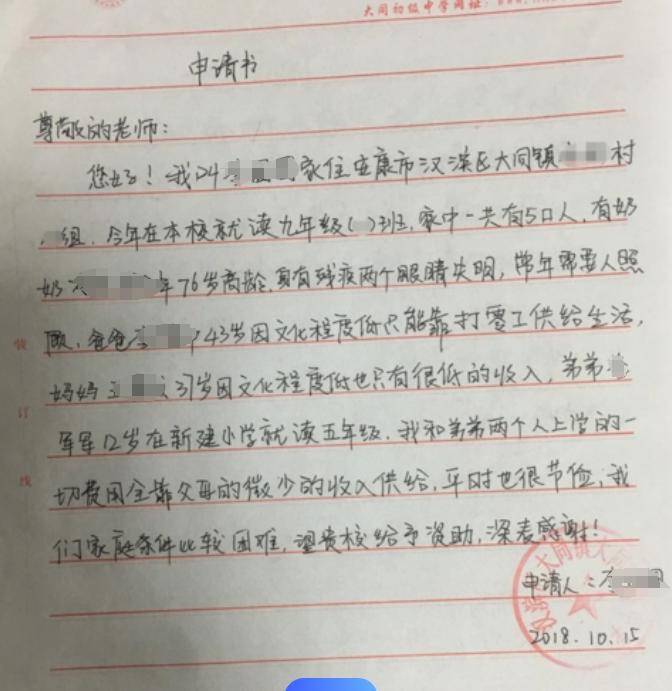 大同初级中学网址：
申请书
尊敬的老师：
您好！我叫家住安康市汉滨区大同镇村
组，今年在本校就读九年级( )班，家中一共有5口人，有奶
奶年76岁高龄，身有残疾两个眼睛失明，常年需要人照
顾，爸爸43岁因文化程度低只能靠打零工供给生活，
妈妈37岁因文化程度低也只有很低的收入，弟弟
军军12岁在新建小学就读五年级，我和弟弟两个人上学的一
切费用全靠父母的微少的收入供给，平时也很节俭，我
们家庭条件比较困难，望贵校给予资助，深表感谢！
申请人：
2018.10.15
装
订
线
大同镇大同